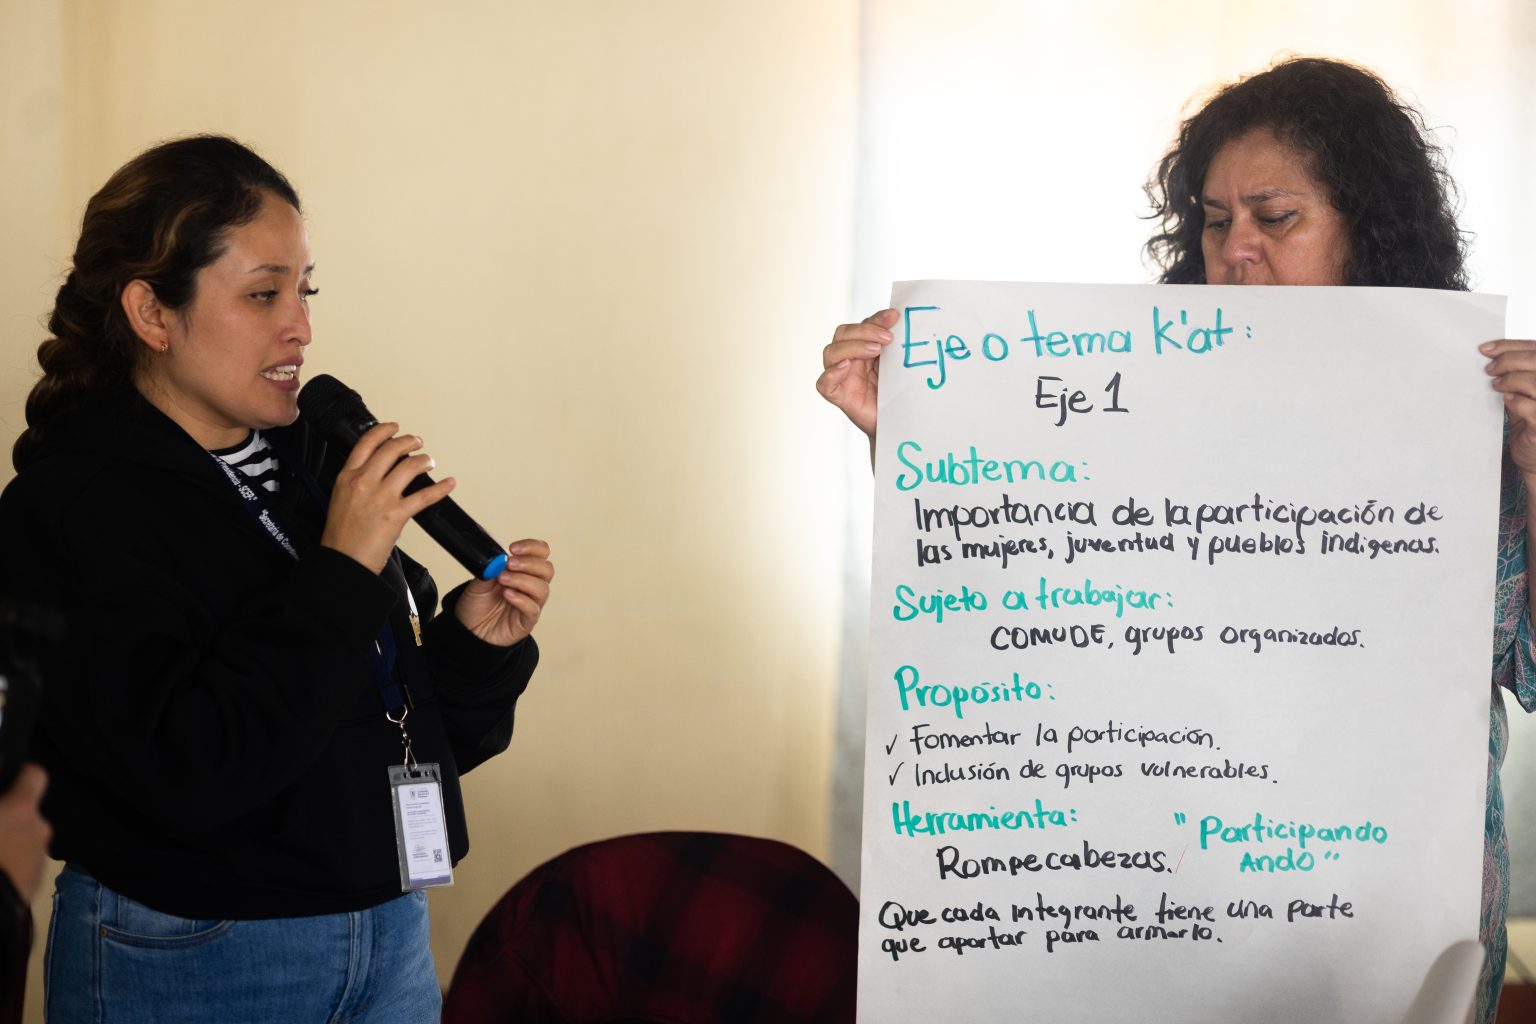 Eje o tema K'at:
Eje 1
Subtema:
Importancia de la participación de
las mujeres, juventud y pueblos indígenas.
Sujeto a trabajar:
COMUDE, grupos organizados.
Propósito:
✓ Fomentar la participación.
✓ Inclusión de grupos vulnerables.
Herramienta:
Rompecabezas.
"Participando
Ando"
Que cada integrante tiene una parte
que aportar para armarlo.
Presidencia - SCEP-
"Secretaría de